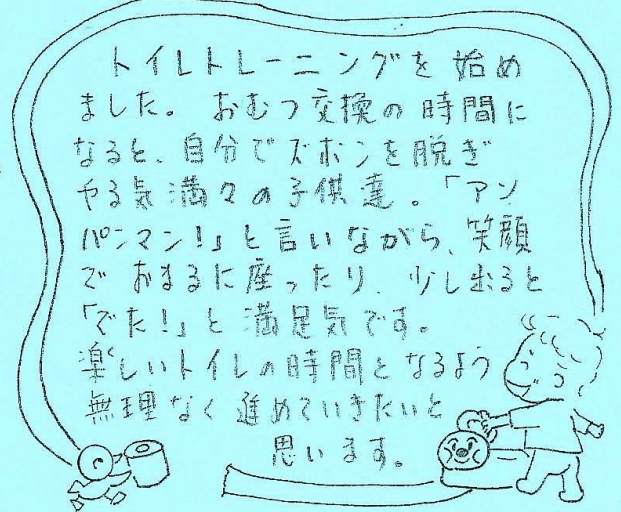 トイレトレーニングを始め
ました。おむつ交換の時間に
なると、自分でズボンを脱ぎ
やる気満々の子供達。「アン
パンマン!」と言いながら、笑顔
でおまるに座ったり、少し出ると
「でた!」と満足気です。
楽しいトイレの時間となるよう
無理なく進めていきたいと
思います。